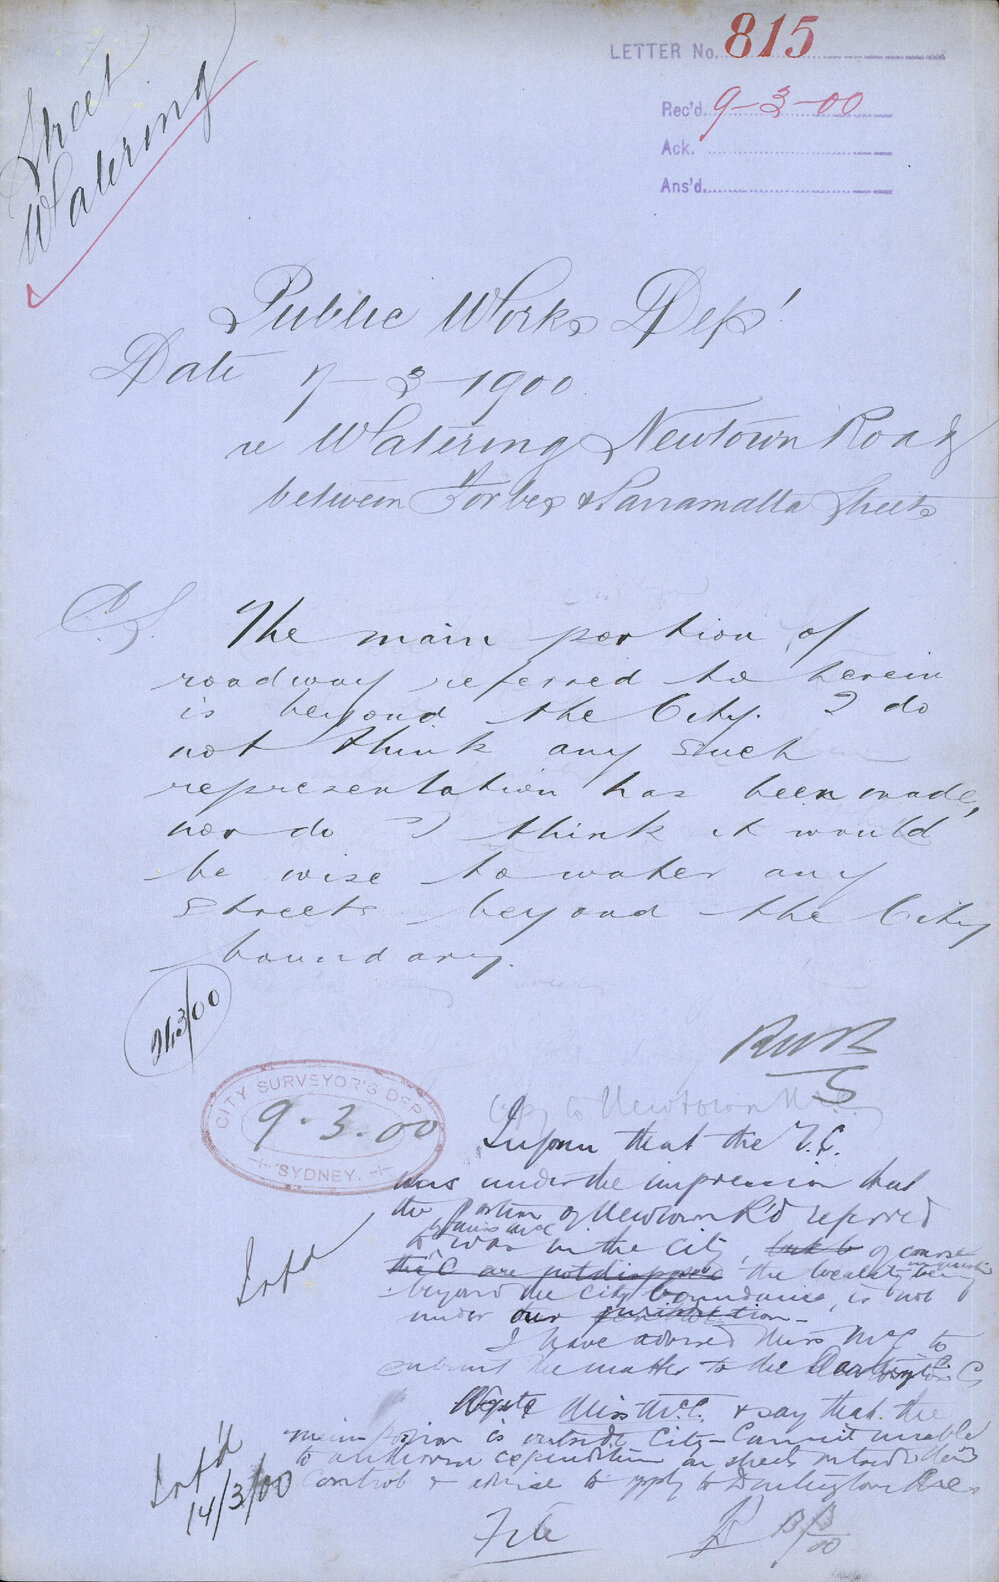 LETTER No. 815
Rec'd. 9-3-00
Ack.
Ans'd.
Street
Watering
Public Works Dep'
Date 7-3-1900
re Watering Newtown Road
between Forbes & Parramatta Streets
The main portion of
roadway referred to herein
is beyond the City. I do
not think any such
representation has been made,
nor do I think it would
be wise to water any
streets beyond the City
boundary.
RWR
CITY SURVEYOR'S DEPT
9.3.00
SYDNEY.
Copy to Newtown
Inform that the T.C.
was under the impression that
the portion of Newtown R'd referred
to by Miss McC was in the City, of course
the C are not disposed the locality in question being
beyond the City boundaries, is not
under our jurisdiction -
I have advised Miss McC to
submit the matter to the Darlington B.C.
Inf'd
Write Miss McC. & say that the
main portion is outside City - Cannot
to authorise expenditure on streets outside
control & advise to apply to Darlington
Inf'd
14/3/00
File
13/3/00